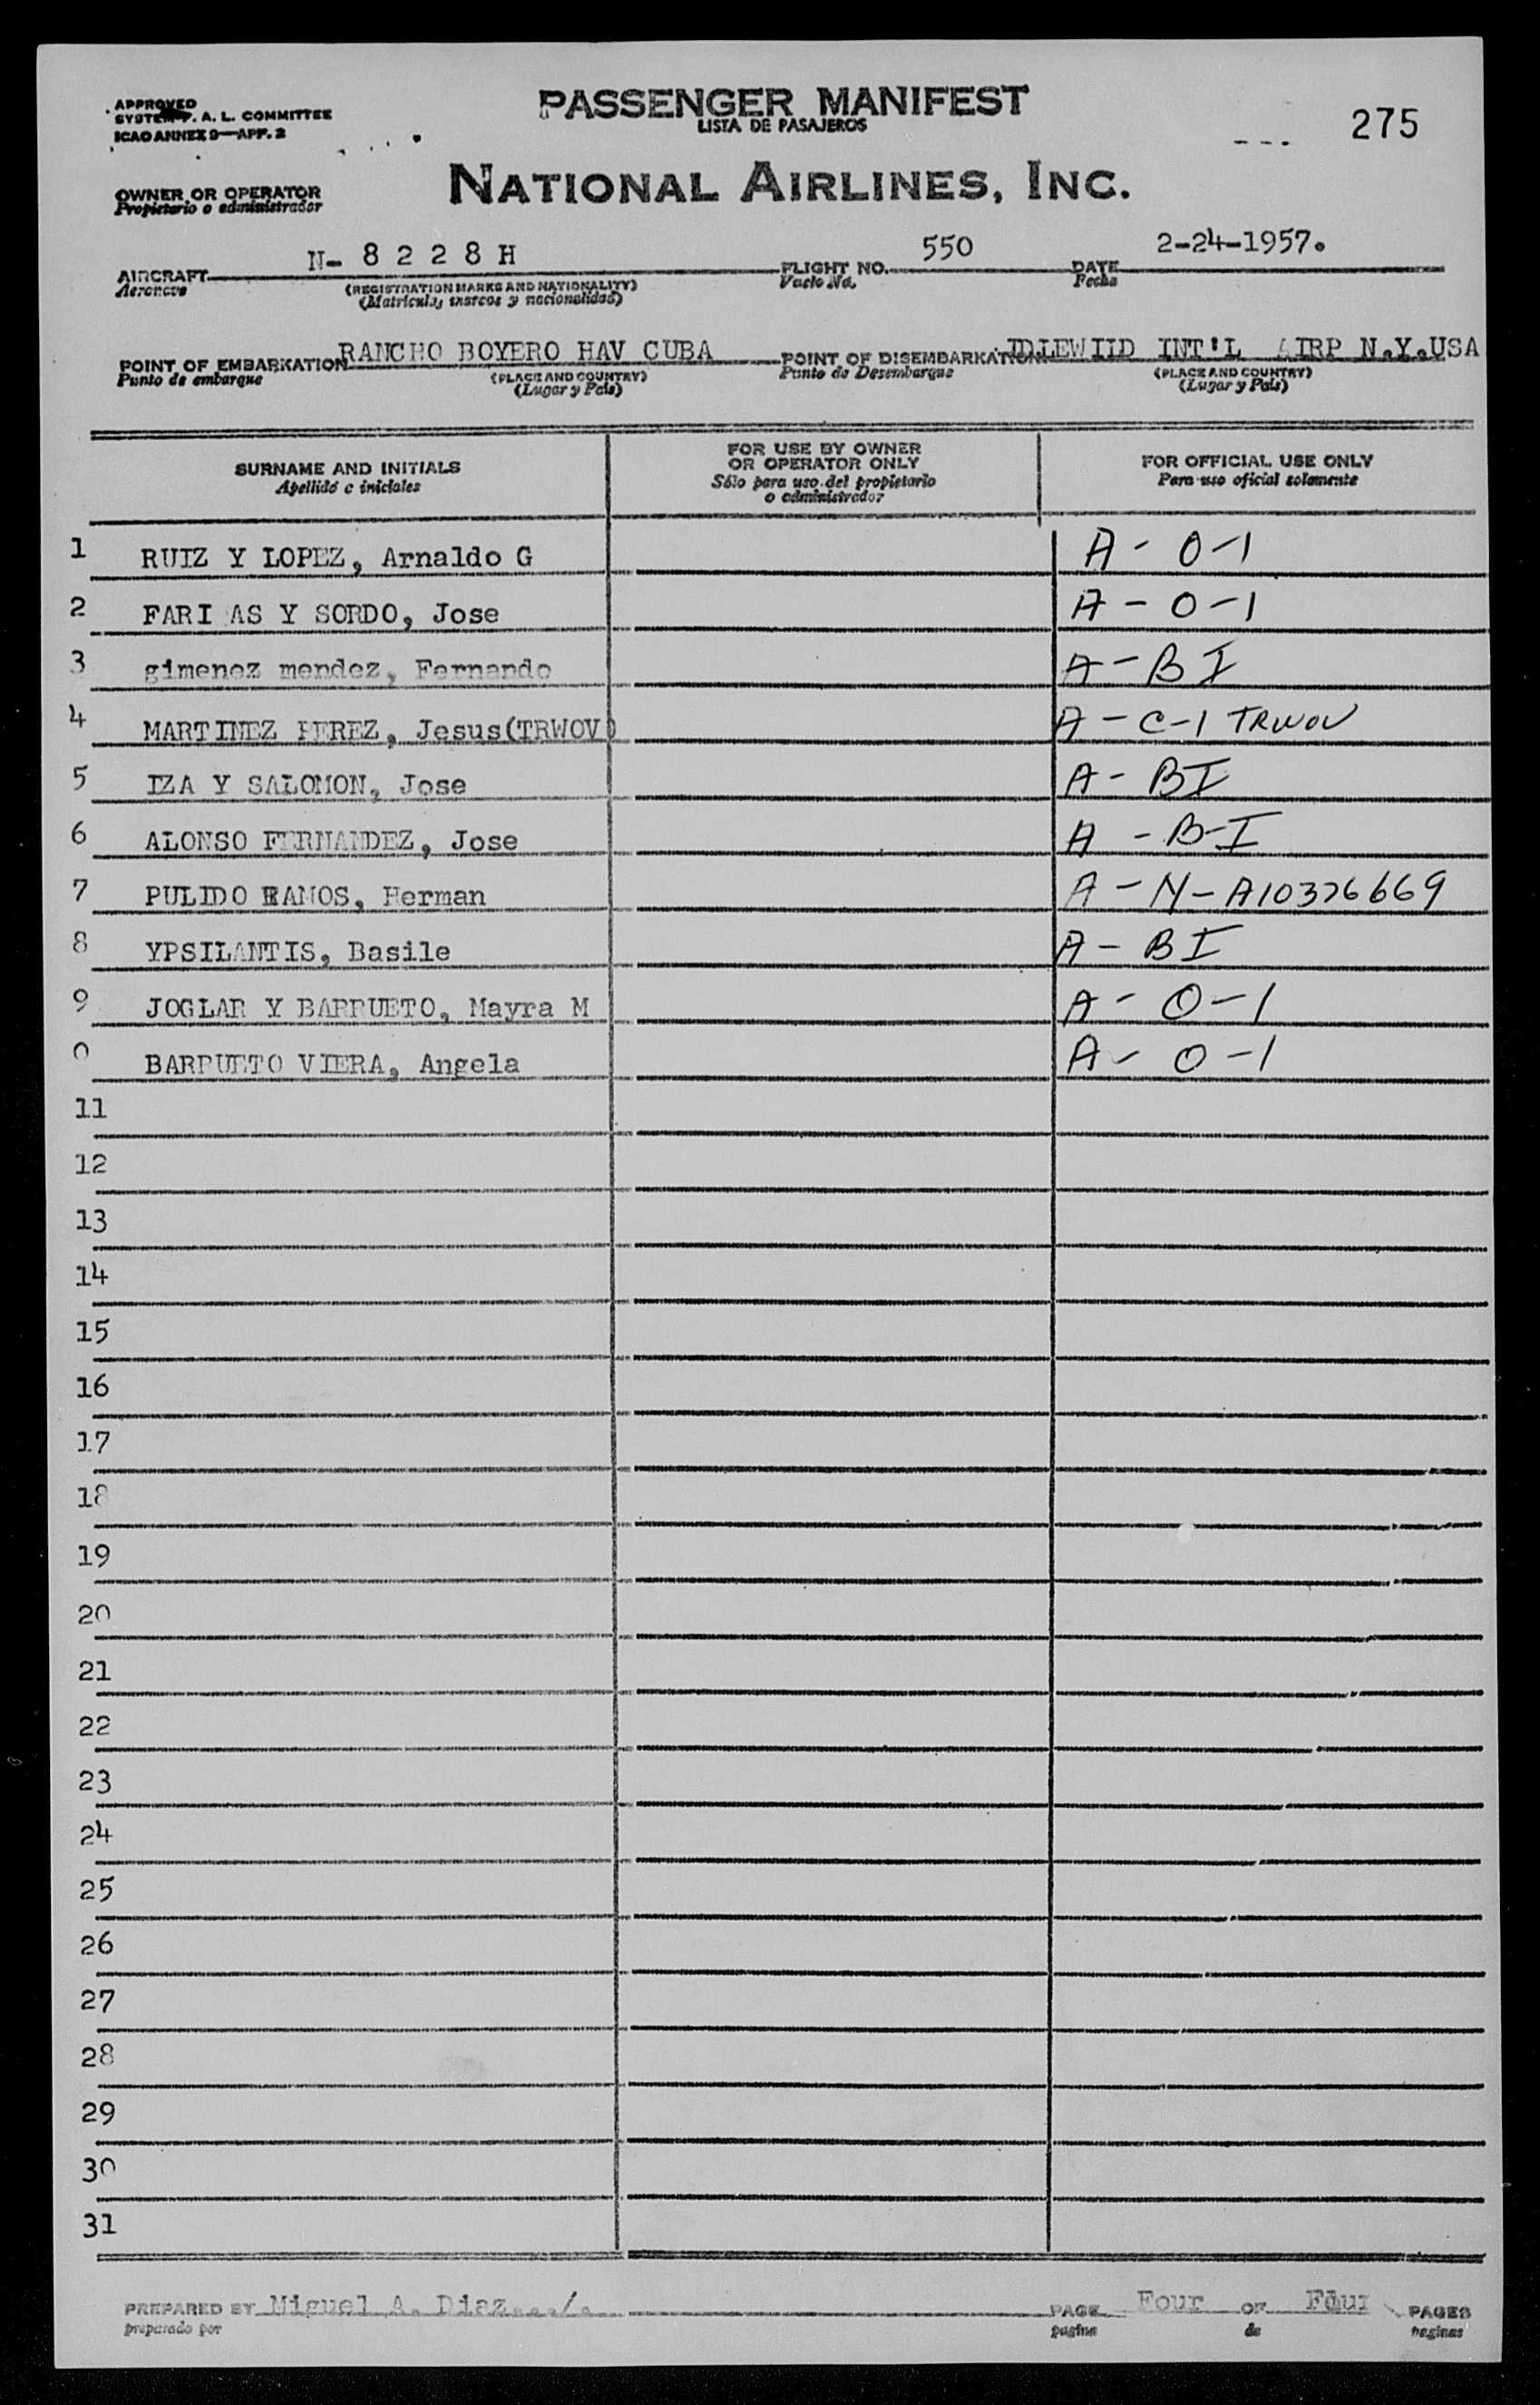 APPROVED
SYSTEM F. A. L. COMMITTEE
ICAO ANNEX 9—APP. 2
PASSENGER MANIFEST
LISTA DE PASAJEROS
275
NATIONAL AIRLINES, INC.
OWNER OR OPERATOR
Propietario o administrador
AIRCRAFT N- 8 2 2 8 H FLIGHT NO. 550 DATE 2-24-1957.
Aeronave (REGISTRATION MARKS AND NATIONALITY) Vuelo No. Fecha
(Matricula, marcas y nacionalidad)
POINT OF EMBARKATION RANCHO BOYERO HAV CUBA POINT OF DISEMBARKATION IDLEWIID INT'L AIRP N.Y.USA
Punto de embarque (PLACE AND COUNTRY) Punto de Desembarque (PLACE AND COUNTRY)
(Lugar y Pais) (Lugar y Pais)
SURNAME AND INITIALS FOR USE BY OWNER OR OPERATOR ONLY FOR OFFICIAL USE ONLY
Apellido e iniciales Sólo para uso del propietario o administrador Para uso oficial solamente
1 RUIZ Y LOPEZ, Arnaldo G A - O-1
2 FARI AS Y SORDO, Jose A - O-1
3 gimenez mendez, Fernando A - B I
4 MARTINEZ PEREZ, Jesus(TRWOV) A - C-1 TRWOV
5 IZA Y SALOMON, Jose A - BI
6 ALONSO FERNANDEZ, Jose A - B-I
7 PULIDO RAMOS, Herman A - N - A10376669
8 YPSILANTIS, Basile A - B I
9 JOGLAR Y BARRUETO, Mayra M A - O-1
0 BARRUETO VIERA, Angela A - O-1
11
12
13
14
15
16
17
18
19
20
21
22
23
24
25
26
27
28
29
30
31
PREPARED BY Miguel A. Diaz.../. PAGE Four OF Four PAGES
preparado por pagina de paginas